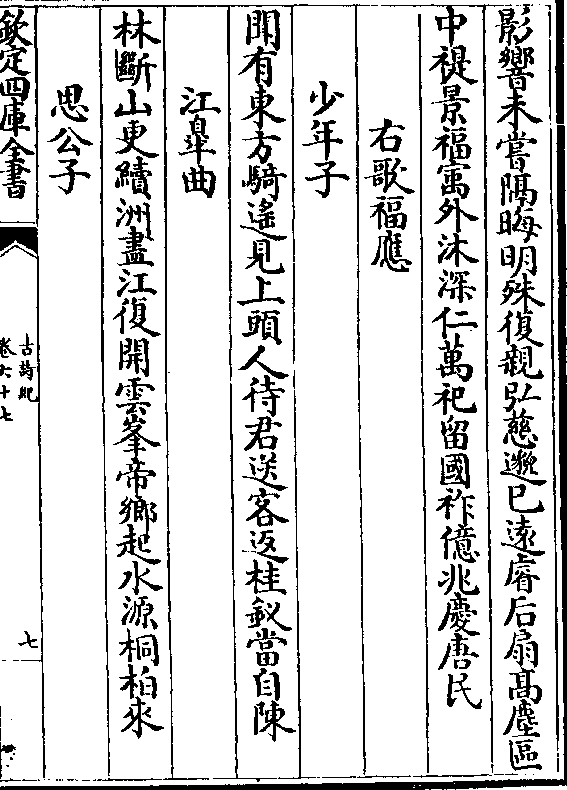 影響未嘗隔晦明殊復親弘慈邈已遠睿后扇高塵區
中禔景福寓外沐深仁萬祀留國祚億兆慶唐民
右歌福應
少年子
聞有東方騎遙見上頭人待君送客返桂釵當自陳
江臯曲
林斷山更續洲盡江復開雲峯帝鄉起水源桐柏來
思公子
欽定四庫全書
古詩紀
卷六十七
七